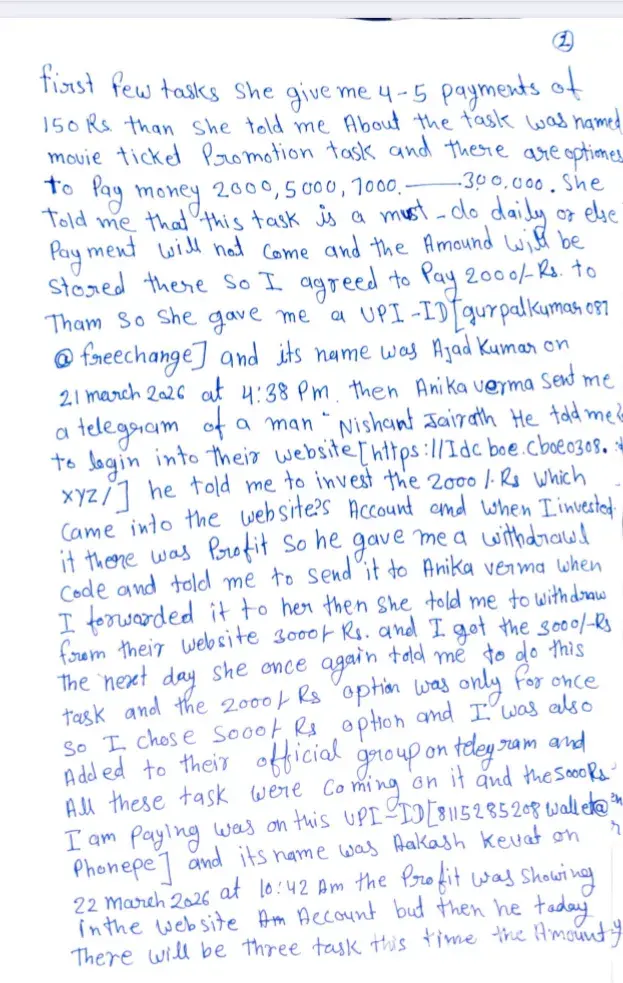 2
first few tasks she give me 4-5 payments of
150 Rs. than she told me About the task was named
movie ticket Promotion task and there are optiones
to Pay money 2000, 5000, 7000, —— 300,000. She
Told me that this task is a must-do daily or else
Payment will not Come and the Amound will be
Stored there so I agreed to Pay 2000/- Rs. to
Tham So She gave me a UPI-ID [gurpalkumar087
@freechange] and its name was Ajad Kumar on
21 march 2026 at 4:38 Pm. then Anika verma Sent me
a telegram of a man "Nishant Jairath He told me
to login into their website [https://Idc boe.Cboe0308.
xyz/] he told me to invest the 2000/- Rs which
Came into the website's Account and when I invested
it there was Profit So he gave me a withdrawl
Code and told me to send it to Anika verma when
I forwarded it to her then she told me to withdraw
from their website 3000/- Rs. and I got the 3000/-Rs
The next day she once again told me to do this
task and the 2000/- Rs option was only for once
So I chose 5000/- Rs option and I was also
Added to their official group on telegram and
All these task were Coming on it and the 5000Rs
I am Paying was on this UPI-ID [8115285208 wallet@
Phonepe] and its name was Aakash Kevat on
22 March 2026 at 10:42 Am the Profit was Showing
in the website Account but then he today
There will be three task this time the Amount